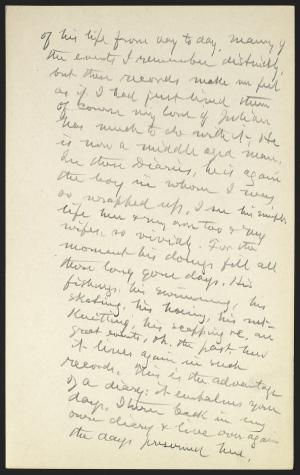 of his life from day to day, many of
the events I remember distinctly,
but these records make me feel
as if I had just lived them
Of course my love of Julian
has much to do with it. He
is now a middle aged man.
In these Diaries, he is again
the boy in whom I was
so wrapped up, I see his simple
life here & my own too & my
wifes, so vividly. For the
moment his doings fill all
those long gone days. His
fishing, his swimming, his
skating, his hoeing, his
Knitting, his are
great events, oh, the past, how
it lives again in such
records. This is the advantage
of a diary: it embalms your
days. I turn back in my
own diary & live over again
the days preserved here,